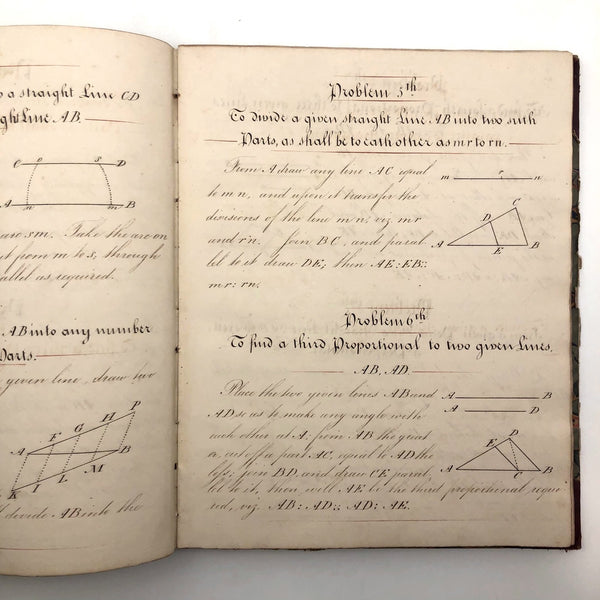 o a straight Line CD
ght Line AB.
C o s D
A n m B
are sm. Take the arc on
it from m to s, through
allel as required.
AB into any number
Parts.
given line, draw two
P
H
G
F
A B
M
L
I
K
divide AB into the
Problem 5th
To divide a given straight Line AB into two such
Parts, as shall be to each other as mr to rn.
From A draw any line AC equal
to mn, and upon it transfer the
divisions of the line mn, viz mr
and rn. Join BC, and paral
lel to it draw DE, then AE:EB::
mr: rn.
m r n
C
D
A E B
Problem 6th
To find a third Proportional to two given Lines.
AB, AD.
Place the two given lines AB and
AD so as to make any angle with
each other at A. from AB the great
r, cut off a part AC, equal to AD the
less; join BD, and draw CE paral,
lel to it, then will AE be the third proportional requi
red, viz AB: AD:: AD: AE.
A B
A D
D
E
A C B